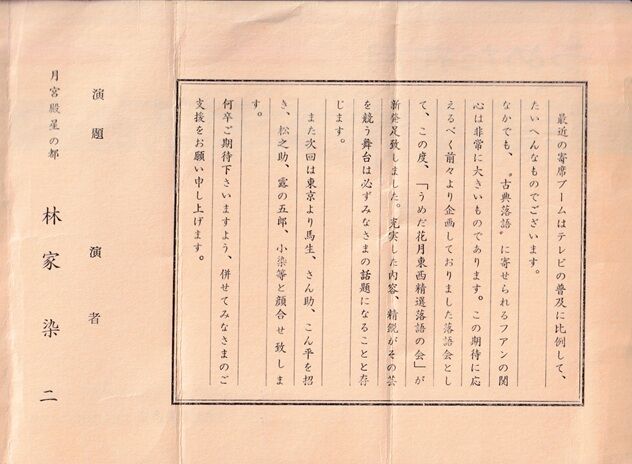 最近の寄席ブームはテレビの普及に比例して、
たいへんなものでございます。
なかでも、〝古典落語〟に寄せられるフアンの関
心は非常に大きいものであります。この期待に応
えるべく前々より企画しておりました落語会とし
て、この度、「うめだ花月東西精選落語の会」が
新発足致しました。充実した内容、精鋭がその芸
を競う舞台は必ずみなさまの話題になることと存
じます。
また次回は東京より馬生、さん助、こん平を招
き、松之助、露の五郎、小染等と顔合せ致しま
す。
何卒ご期待下さいますよう、併せてみなさまのご
支援をお願い申し上げます。
演題 演者
月宮殿星の都 林家染二